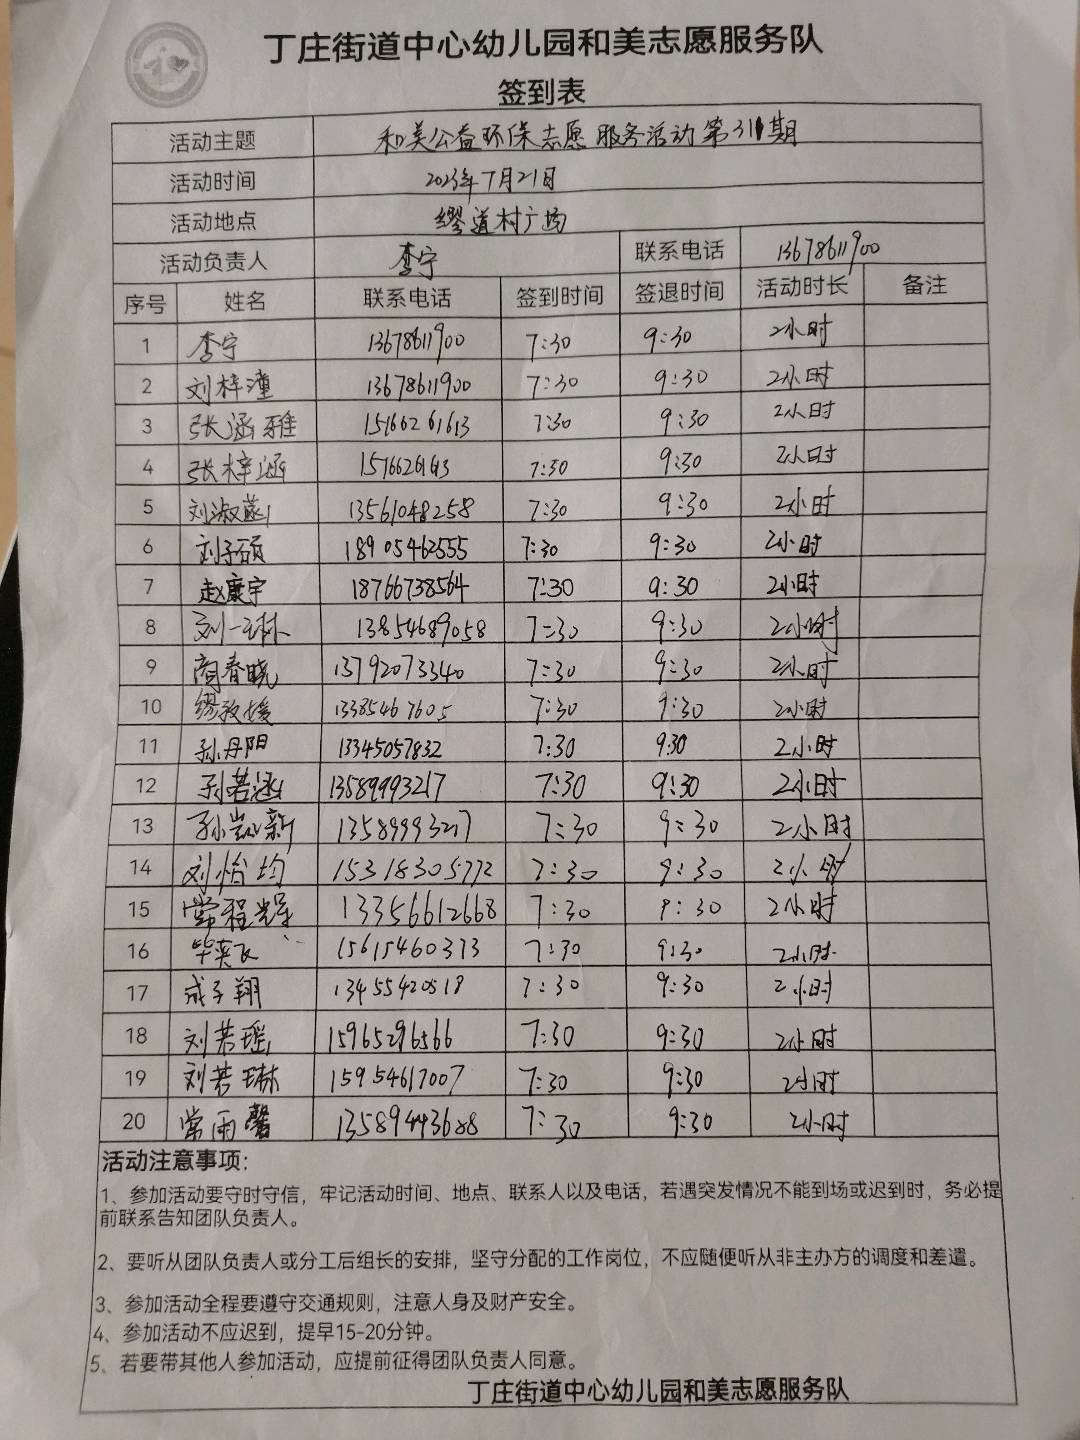 丁庄街道中心幼儿园和美志愿服务队
签到表
活动主题 和美公益环保志愿服务活动第311期
活动时间 2023年7月21日
活动地点 缪道村广场
活动负责人 李宁 联系电话 13678611900
序号 姓名 联系电话 签到时间 签退时间 活动时长 备注
1 李宁 13678611900 7:30 9:30 2小时
2 刘梓潼 13678611900 7:30 9:30 2小时
3 张涵雅 15166261613 7:30 9:30 2小时
4 张梓涵 7:30 9:30 2小时
5 刘淑菡 13561048258 7:30 9:30 2小时
6 刘子硕 18905462555 7:30 9:30 2小时
7 赵康宇 18766738564 7:30 9:30 2小时
8 刘一琳 13854689058 7:30 9:30 2小时
9 商春晓 13792073340 7:30 9:30 2小时
10 13385467605 7:30 9:30 2小时
11 孙丹阳 13345057832 7:30 9:30 2小时
12 孙若涵 13589993217 7:30 9:30 2小时
13 孙凯新 13589993217 7:30 9:30 2小时
14 刘怡均 15318305772 7:30 9:30 2小时
15 常程辉 13356612668 7:30 9:30 2小时
16 毕英飞 15615460373 7:30 9:30 2小时
17 成子翔 13455420518 7:30 9:30 2小时
18 刘若瑶 15965296566 7:30 9:30 2小时
19 刘若琳 15954617007 7:30 9:30 2小时
20 常雨馨 13589443688 7:30 9:30 2小时
活动注意事项:
1、参加活动要守时守信，牢记活动时间、地点、联系人以及电话，若遇突发情况不能到场或迟到时，务必提
前联系告知团队负责人。
2、要听从团队负责人或分工后组长的安排，坚守分配的工作岗位，不应随便听从非主办方的调度和差遣。
3、参加活动全程要遵守交通规则，注意人身及财产安全。
4、参加活动不应迟到，提早15-20分钟。
5、若要带其他人参加活动，应提前征得团队负责人同意。
丁庄街道中心幼儿园和美志愿服务队